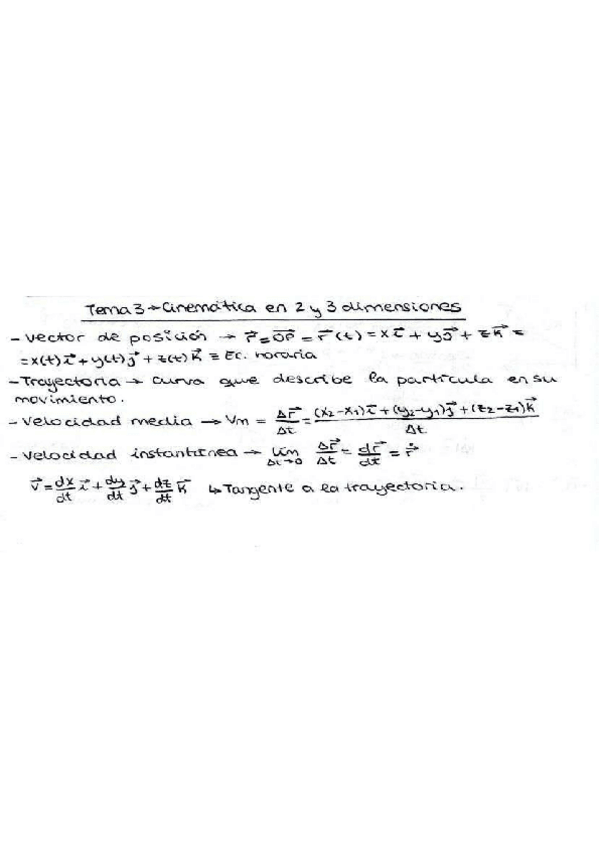 Tema 3 → Cinemática en 2 y 3 dimensiones
- Vector de posición → r⃗ = OP⃗ = r⃗(t) = x i⃗ + y j⃗ + z k⃗ =
= x(t) i⃗ + y(t) j⃗ + z(t) k⃗ ≡ Ec. horaria
- Trayectoria → curva que describe la partícula en su
movimiento.
- Velocidad media → Vm = Δr⃗/Δt = ((x₂-x₁) i⃗ + (y₂-y₁) j⃗ + (z₂-z₁) k⃗)/Δt
- Velocidad instantánea → lím Δt→0 Δr⃗/Δt = dr⃗/dt = ṙ⃗
v⃗ = dx/dt i⃗ + dy/dt j⃗ + dz/dt k⃗ ↳ Tangente a la trayectoria.